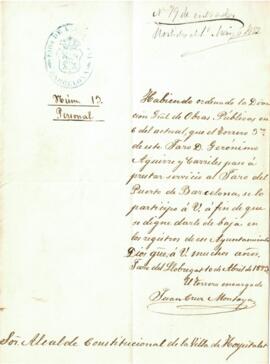 Nº 79 de entrada
BARCELONA
Núm. 13.
Personal
Habiendo ordenado la Direc
cion Gral de Obras Públicas en
6 del actual, que el torrero 3º
de este Faro D. Gerónimo
Aguirre y Carriles pase á
prestar servicio al Faro del
Puerto de Barcelona, se lo
participo á V. á fin de que
se digne darle de baja en
los registros de ese Ayuntamiento
Dios gue. á V. muchos años,
Faro del Llobregat 10 de Abril de
El torrero encargado
Juan Cruz Montoya
Sor. Alcalde Constitucional de la Villa de Hospitalet